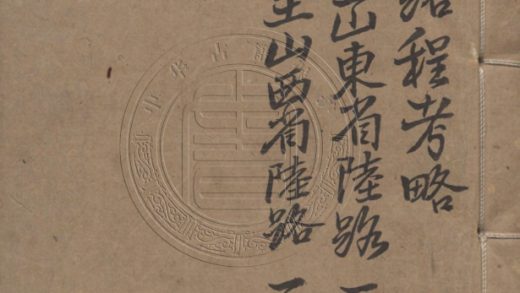 路程考略
山東省陸路
至山西省陸路